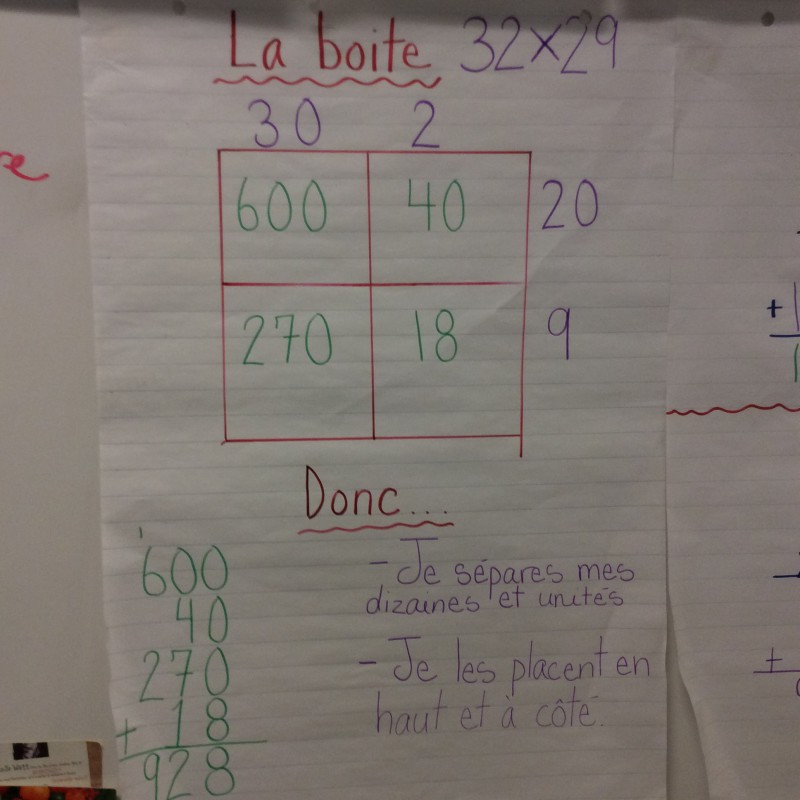 La boite 32×29
30 2
600 40 20
270 18 9
Donc...
1
600
40
270
+ 18
928
- Je sépares mes
dizaines et unités
- Je les placent en
haut et à côté.